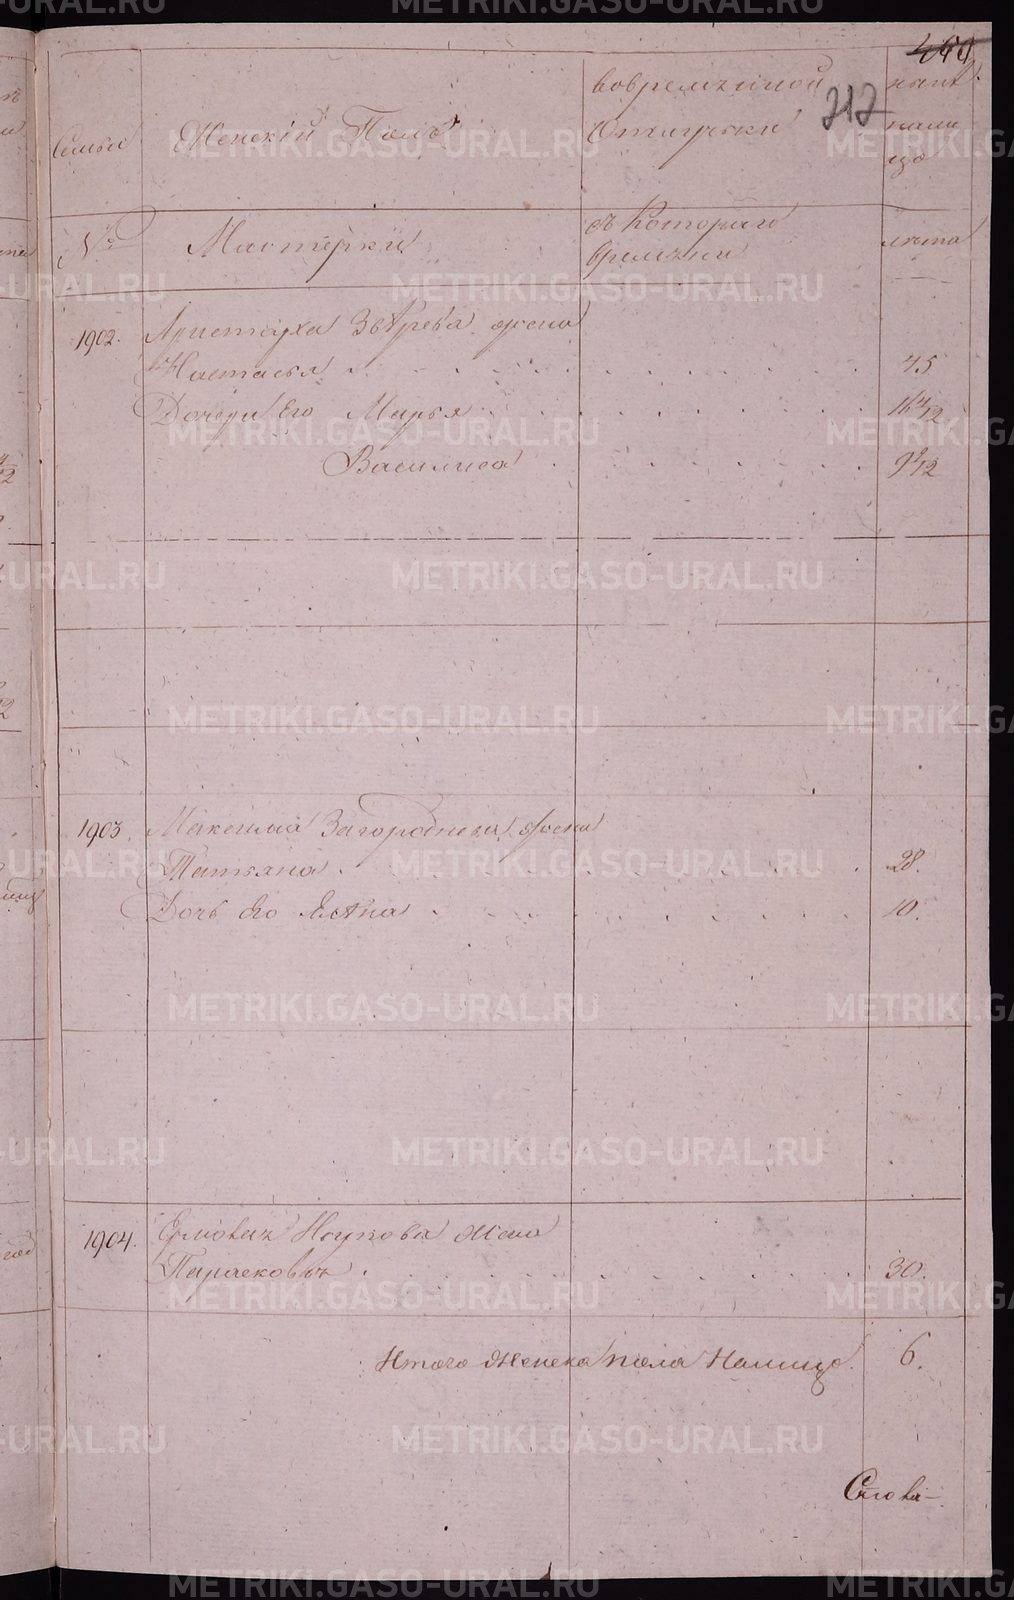 450
217
Семьи
Женскій Полъ
вовременной
Отлучьки
ныне
нали
цо
№
Мастерки
съ Котораго
времяни
лета
1902.
Аристарха Зверева жена
Настасья 45
Дочери Его Марья 16 4/12
Василиса 9 2/12
1903.
Максима Загороднева жена
Татьяна 28.
Дочь его Елена 10.
1904.
Наумова жена
Парасковья 30.
Итого Женска пола Налицо 6.
METRIKI.GASO-URAL.RU